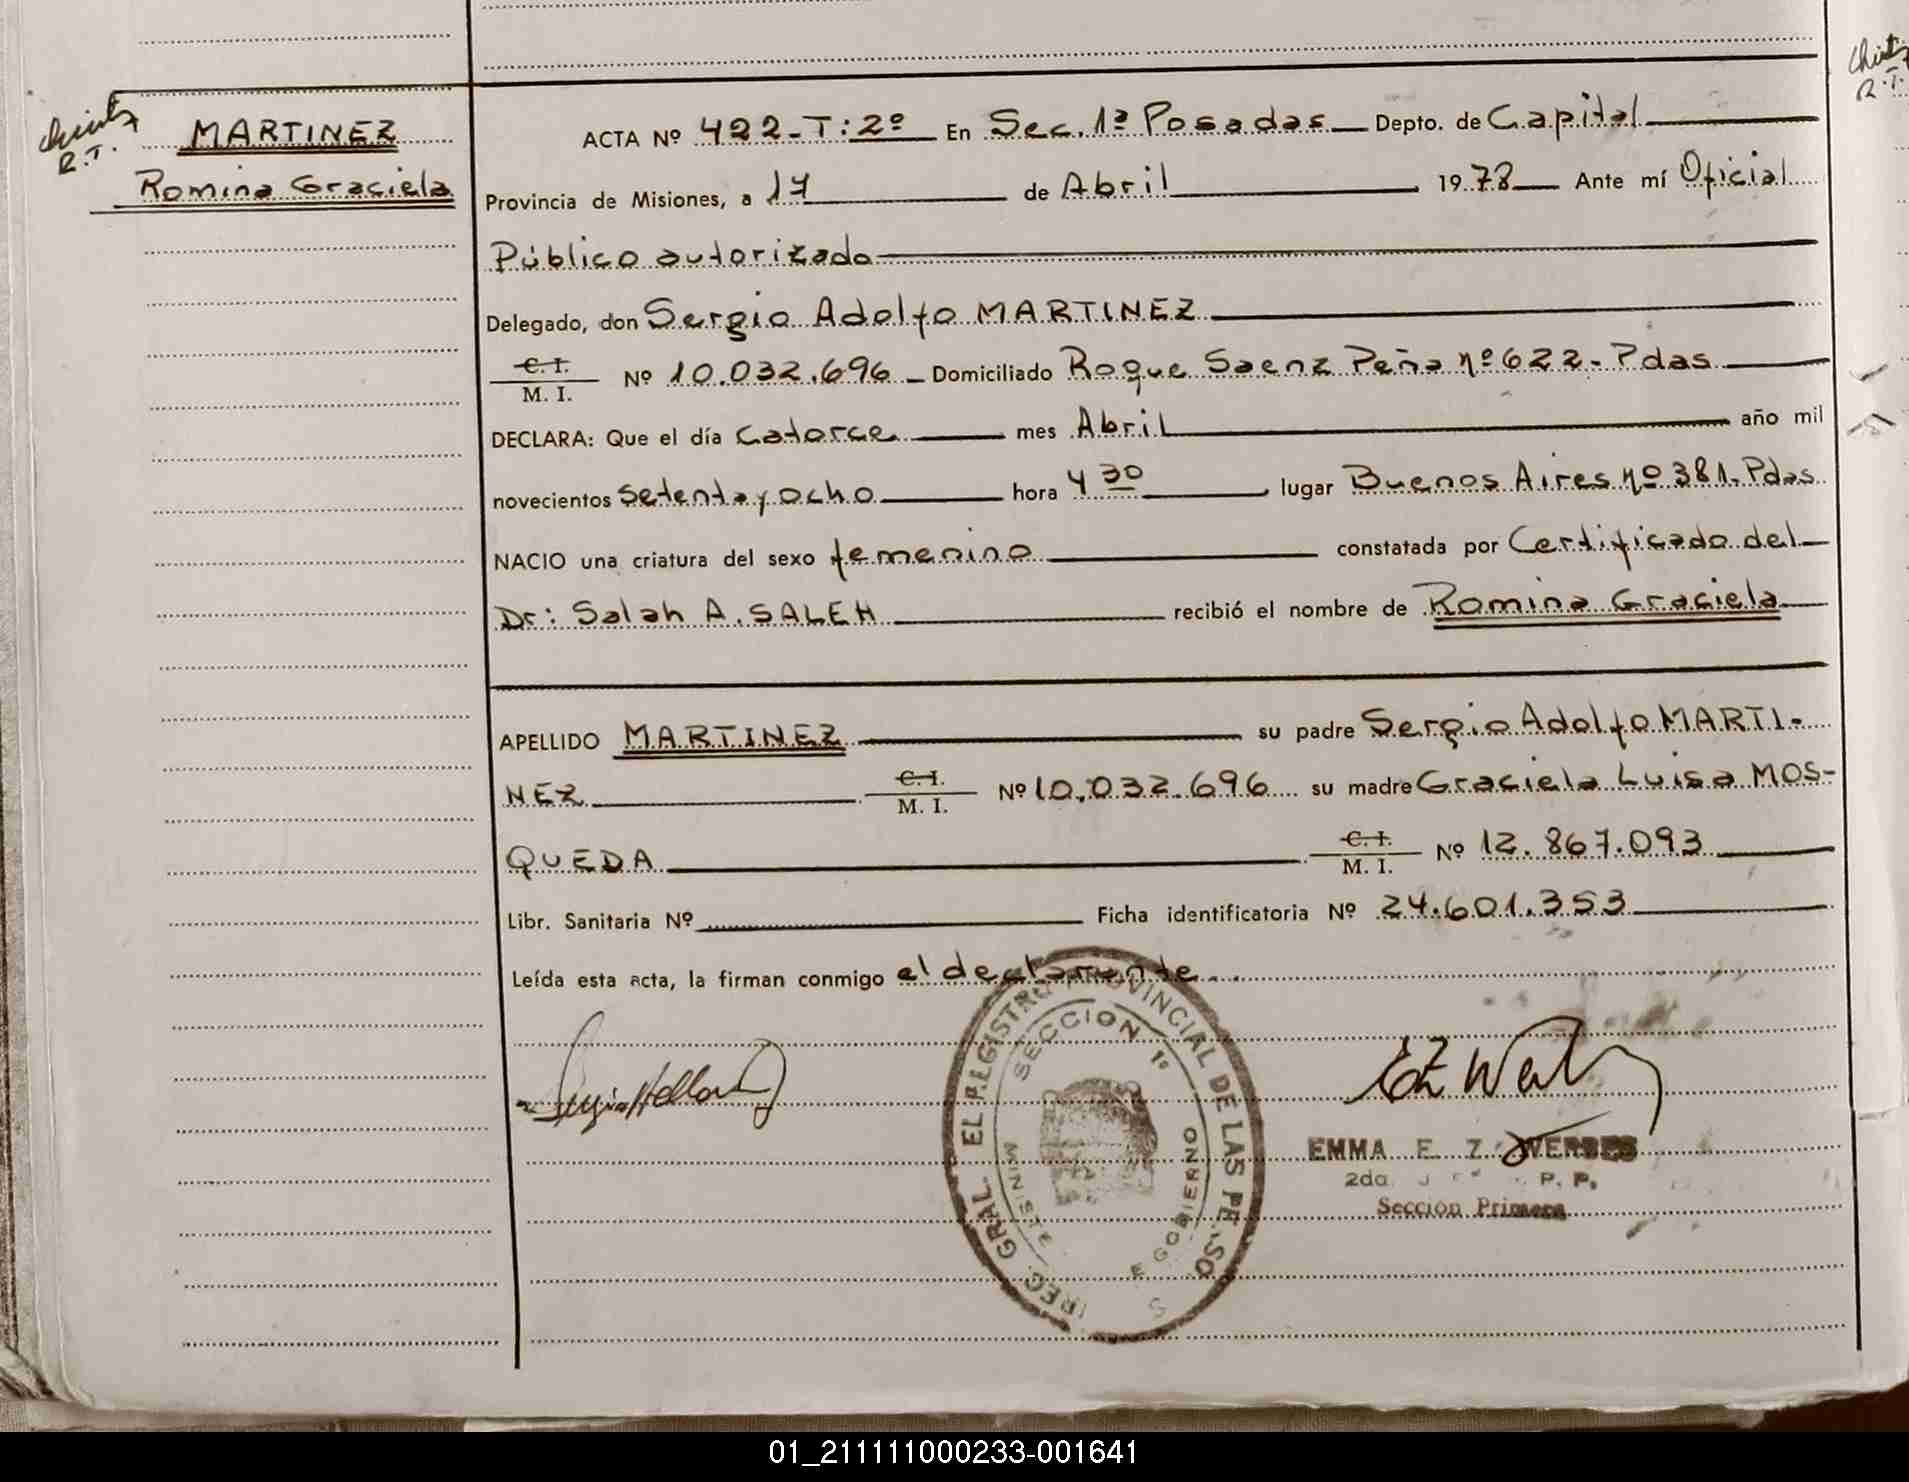 MARTINEZ
Romina Graciela
R.T.
ACTA Nº 422-T:2º En Sec. 1ª Posadas Depto. de Capital
Provincia de Misiones, a 17 de Abril 1978 Ante mí Oficial
Público autorizado
Delegado, don Sergio Adolfo MARTINEZ
C. I.
M. I. Nº 10.032.696 Domiciliado Roque Saenz Peña nº 622- Pdas
DECLARA: Que el día catorce mes Abril año mil
novecientos setenta y ocho hora 4 30 lugar Buenos Aires nº 381- Pdas
NACIO una criatura del sexo femenino constatada por Certificado del
Dr: Salah A. SALEH recibió el nombre de Romina Graciela
APELLIDO MARTINEZ su padre Sergio Adolfo MARTI-
NEZ C. I. M. I. Nº 10.032.696 su madre Graciela Luisa MOS-
QUEDA C. I. M. I. Nº 12.867.093
Libr. Sanitaria Nº Ficha identificatoria Nº 24.601.353
Leída esta acta, la firman conmigo el declarante
IREC. GRAL. EL REGISTRO PROVINCIAL DE LAS PE SO S
SECCION 1ª
MINISTE E GOBIERNO
EMMA E. Z. WERBES
2da. P. P.
Sección Primera
R.T.
01_211111000233-001641